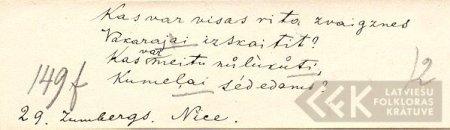 Kas var visas rīta zvaigznes
Vakarajai izskaitīt?
Kas var meitu nūlūkūti,
Kumeļai sēdēdams?
149f
12
29. Zumbergs. Nīce.
LATVIEŠU
FOLKLORAS
KRĀTUVE